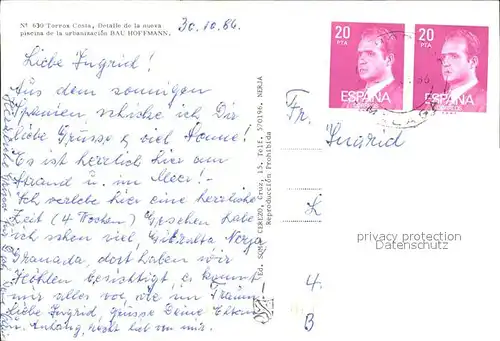 Nº 630 Torrox Costa, Detalle de la nueva
piscina de la urbanización BAU HOFFMANN.
30.10.86.
Liebe Ingrid!
Aus dem sonnigen
Spanien schicke ich Dir
liebe Grüsse u. viel Sonne!
Es ist herrlich hier am
Strand u. im Meer! -
Ich verlebe hier eine herrliche
Zeit (4 Wochen) Gesehen habe
ich schon viel, Gibralta Nerja
Granada, dort haben wir
Höhlen besichtigt es kommt
mir alles vor, wie im Traum
liebe Ingrid, grüsse Deine Eltern
u. Anhang, recht lieb von mir.
Ed. SOMI CEREZO, Cruz, 15, Telf. 520196. NERJA
Reproducción Prohibida
20
PTA
ESPAÑA
20
PTA
ESPAÑA
Fr.
Ingrid
L
4.
B
privacy protection
privacy protection